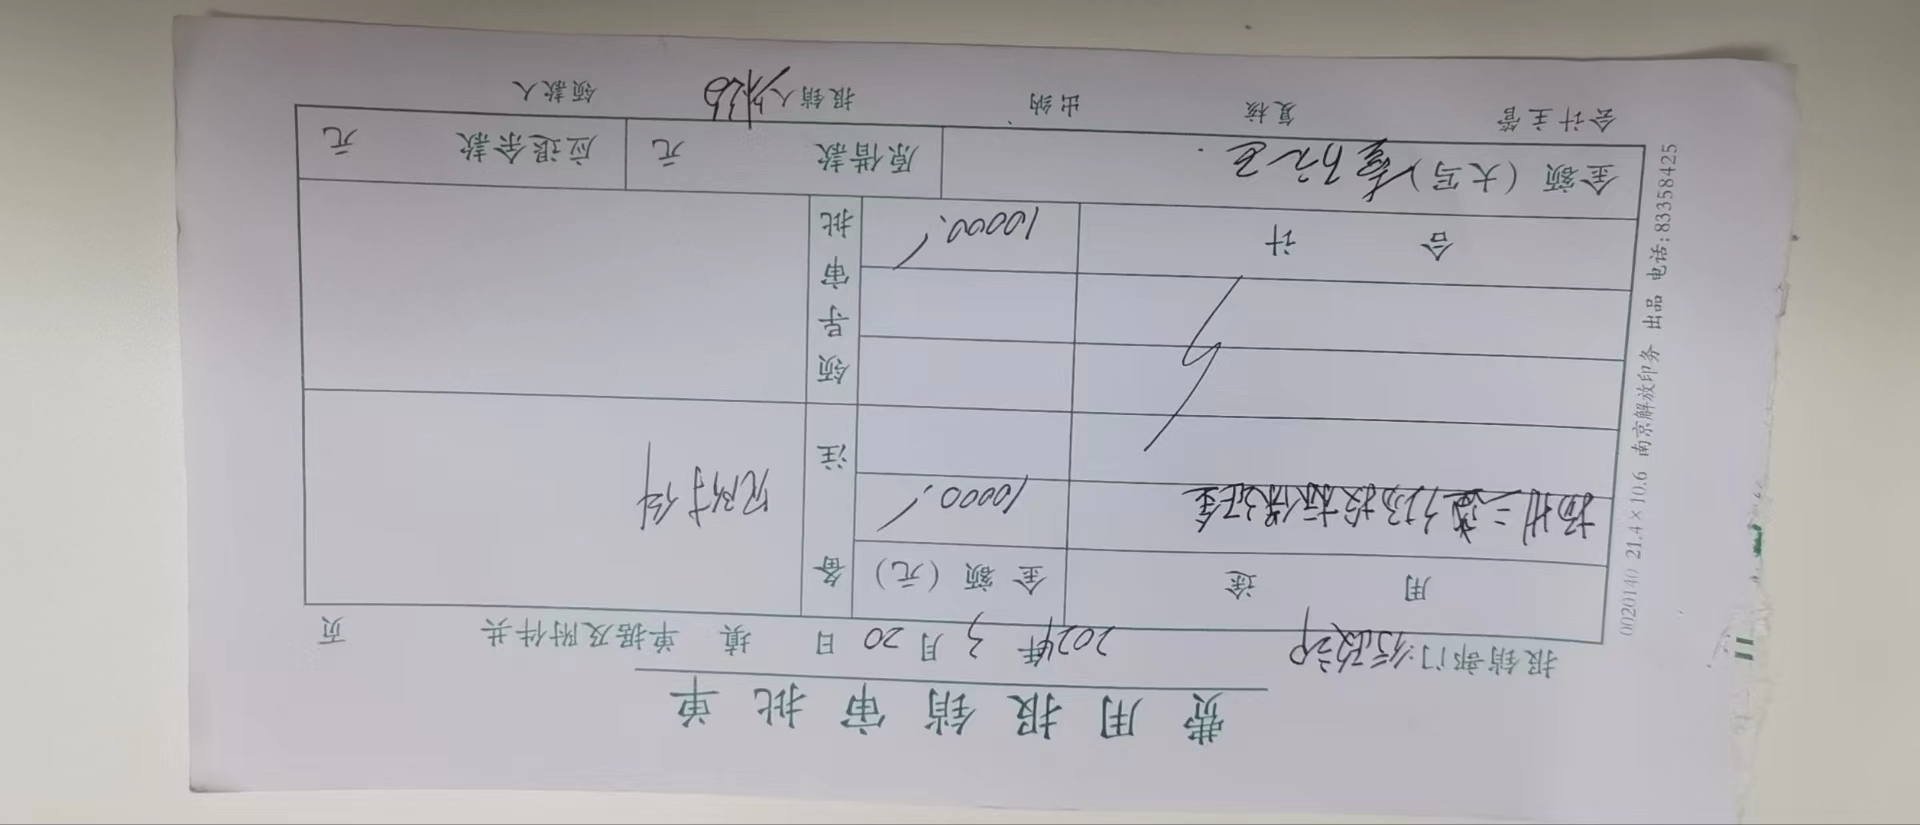 费用报销审批单
报销部门：行政部 2024年 3月 20日 填 单据及附件共 页
用途 金额（元） 备注 见附件
扬州二 投标保证金 10000.
合计 10000. 领导审批
金额（大写）壹万元正. 原借款 元 应退余款 元
会计主管 复核 出纳 报销人 领款人
0020140 21.4×10.6 南京解放印务 出品 电话:83358425